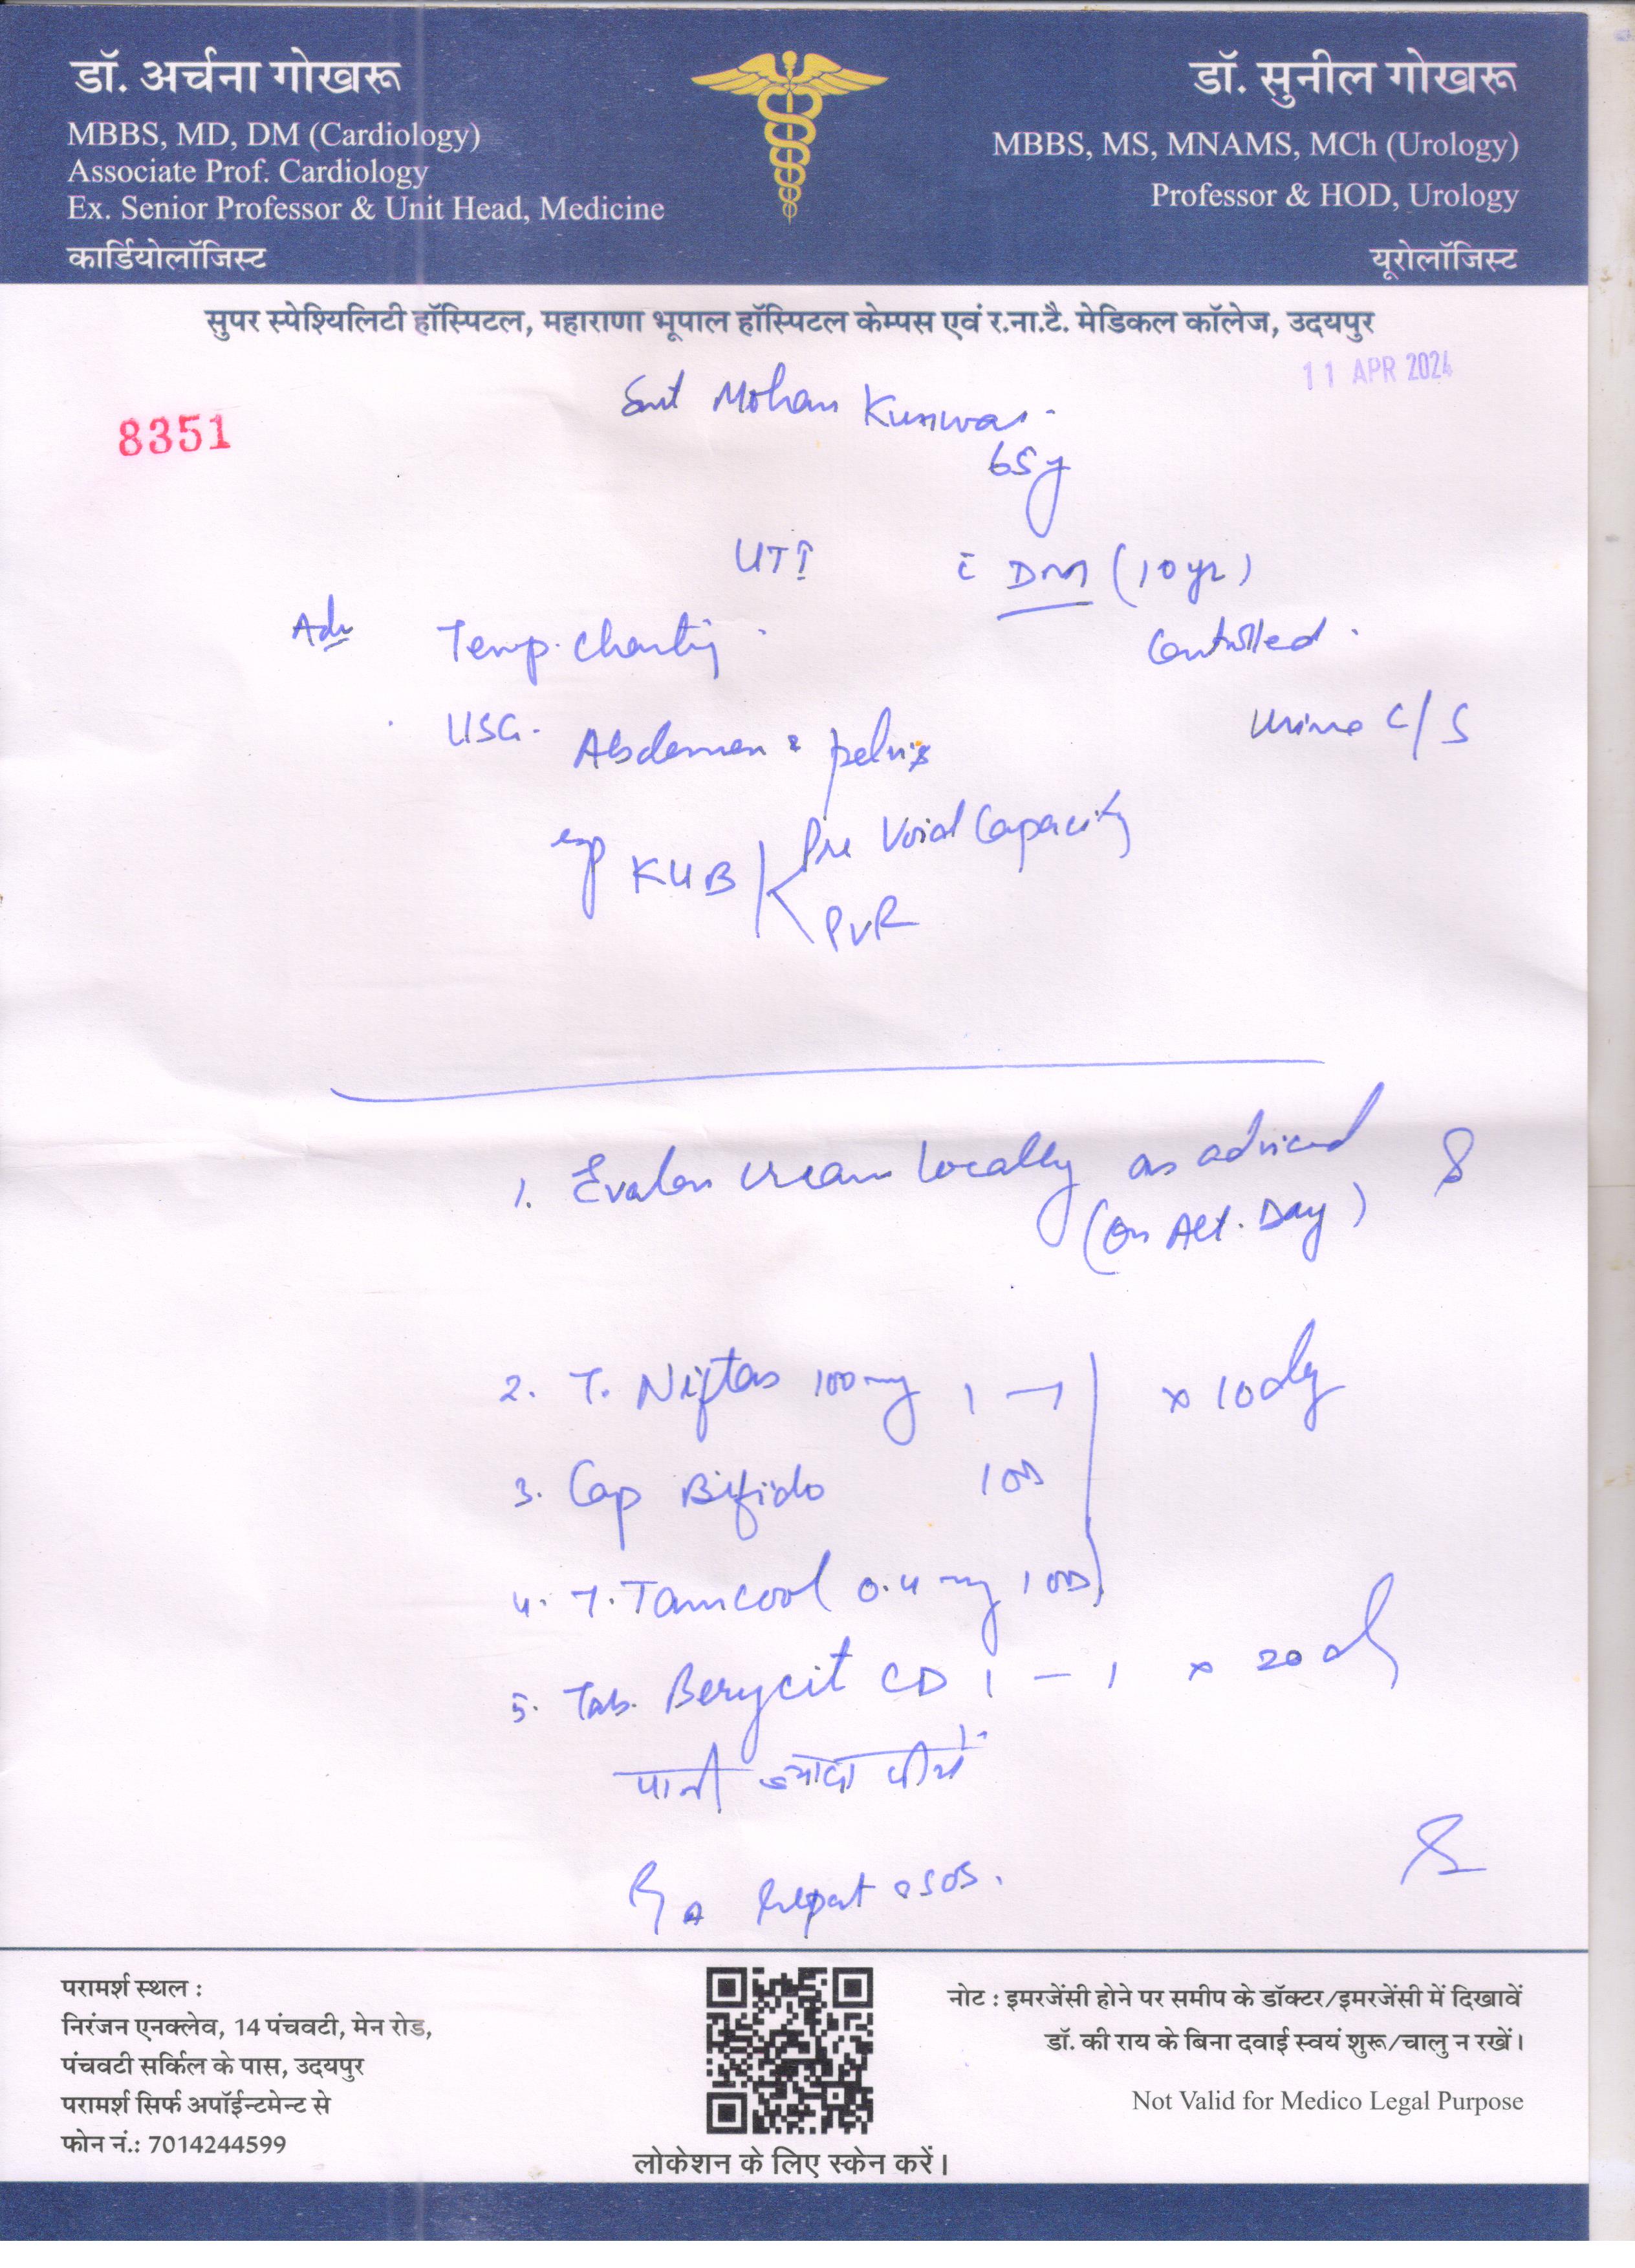 डॉ. अर्चना गोखरू
MBBS, MD, DM (Cardiology)
Associate Prof. Cardiology
Ex. Senior Professor & Unit Head, Medicine
कार्डियोलॉजिस्ट
डॉ. सुनील गोखरू
MBBS, MS, MNAMS, MCh (Urology)
Professor & HOD, Urology
यूरोलॉजिस्ट
सुपर स्पेश्यिलिटी हॉस्पिटल, महाराणा भूपाल हॉस्पिटल केम्पस एवं र.ना.टै. मेडिकल कॉलेज, उदयपुर
11 APR 2024
8351
Smt Mohan Kunwar
65y
UTI c DM (10 yr)
Adv Temp. Charting Controlled
USG. Abdomen & pelvis Urine C/S
esp KUB Pre Void Capacity
PVR
1. Evalon cream locally as adviced
(On Alt. Day)
2. T. Niftas 100mg 1 - 1 x 10 day
3. Cap Bifido 1 OD
4. T. Tamcool 0.4 mg 1 OD
5. Tab. Berycit CD 1 - 1 x 20 d
पानी ज्यादा पीयें
report SOS.
परामर्श स्थल :
निरंजन एनक्लेव, 14 पंचवटी, मेन रोड,
पंचवटी सर्किल के पास, उदयपुर
परामर्श सिर्फ अपॉईन्टमेन्ट से
फोन नं.: 7014244599
लोकेशन के लिए स्केन करें।
नोट : इमरजेंसी होने पर समीप के डॉक्टर/इमरजेंसी में दिखावें
डॉ. की राय के बिना दवाई स्वयं शुरू/चालु न रखें।
Not Valid for Medico Legal Purpose